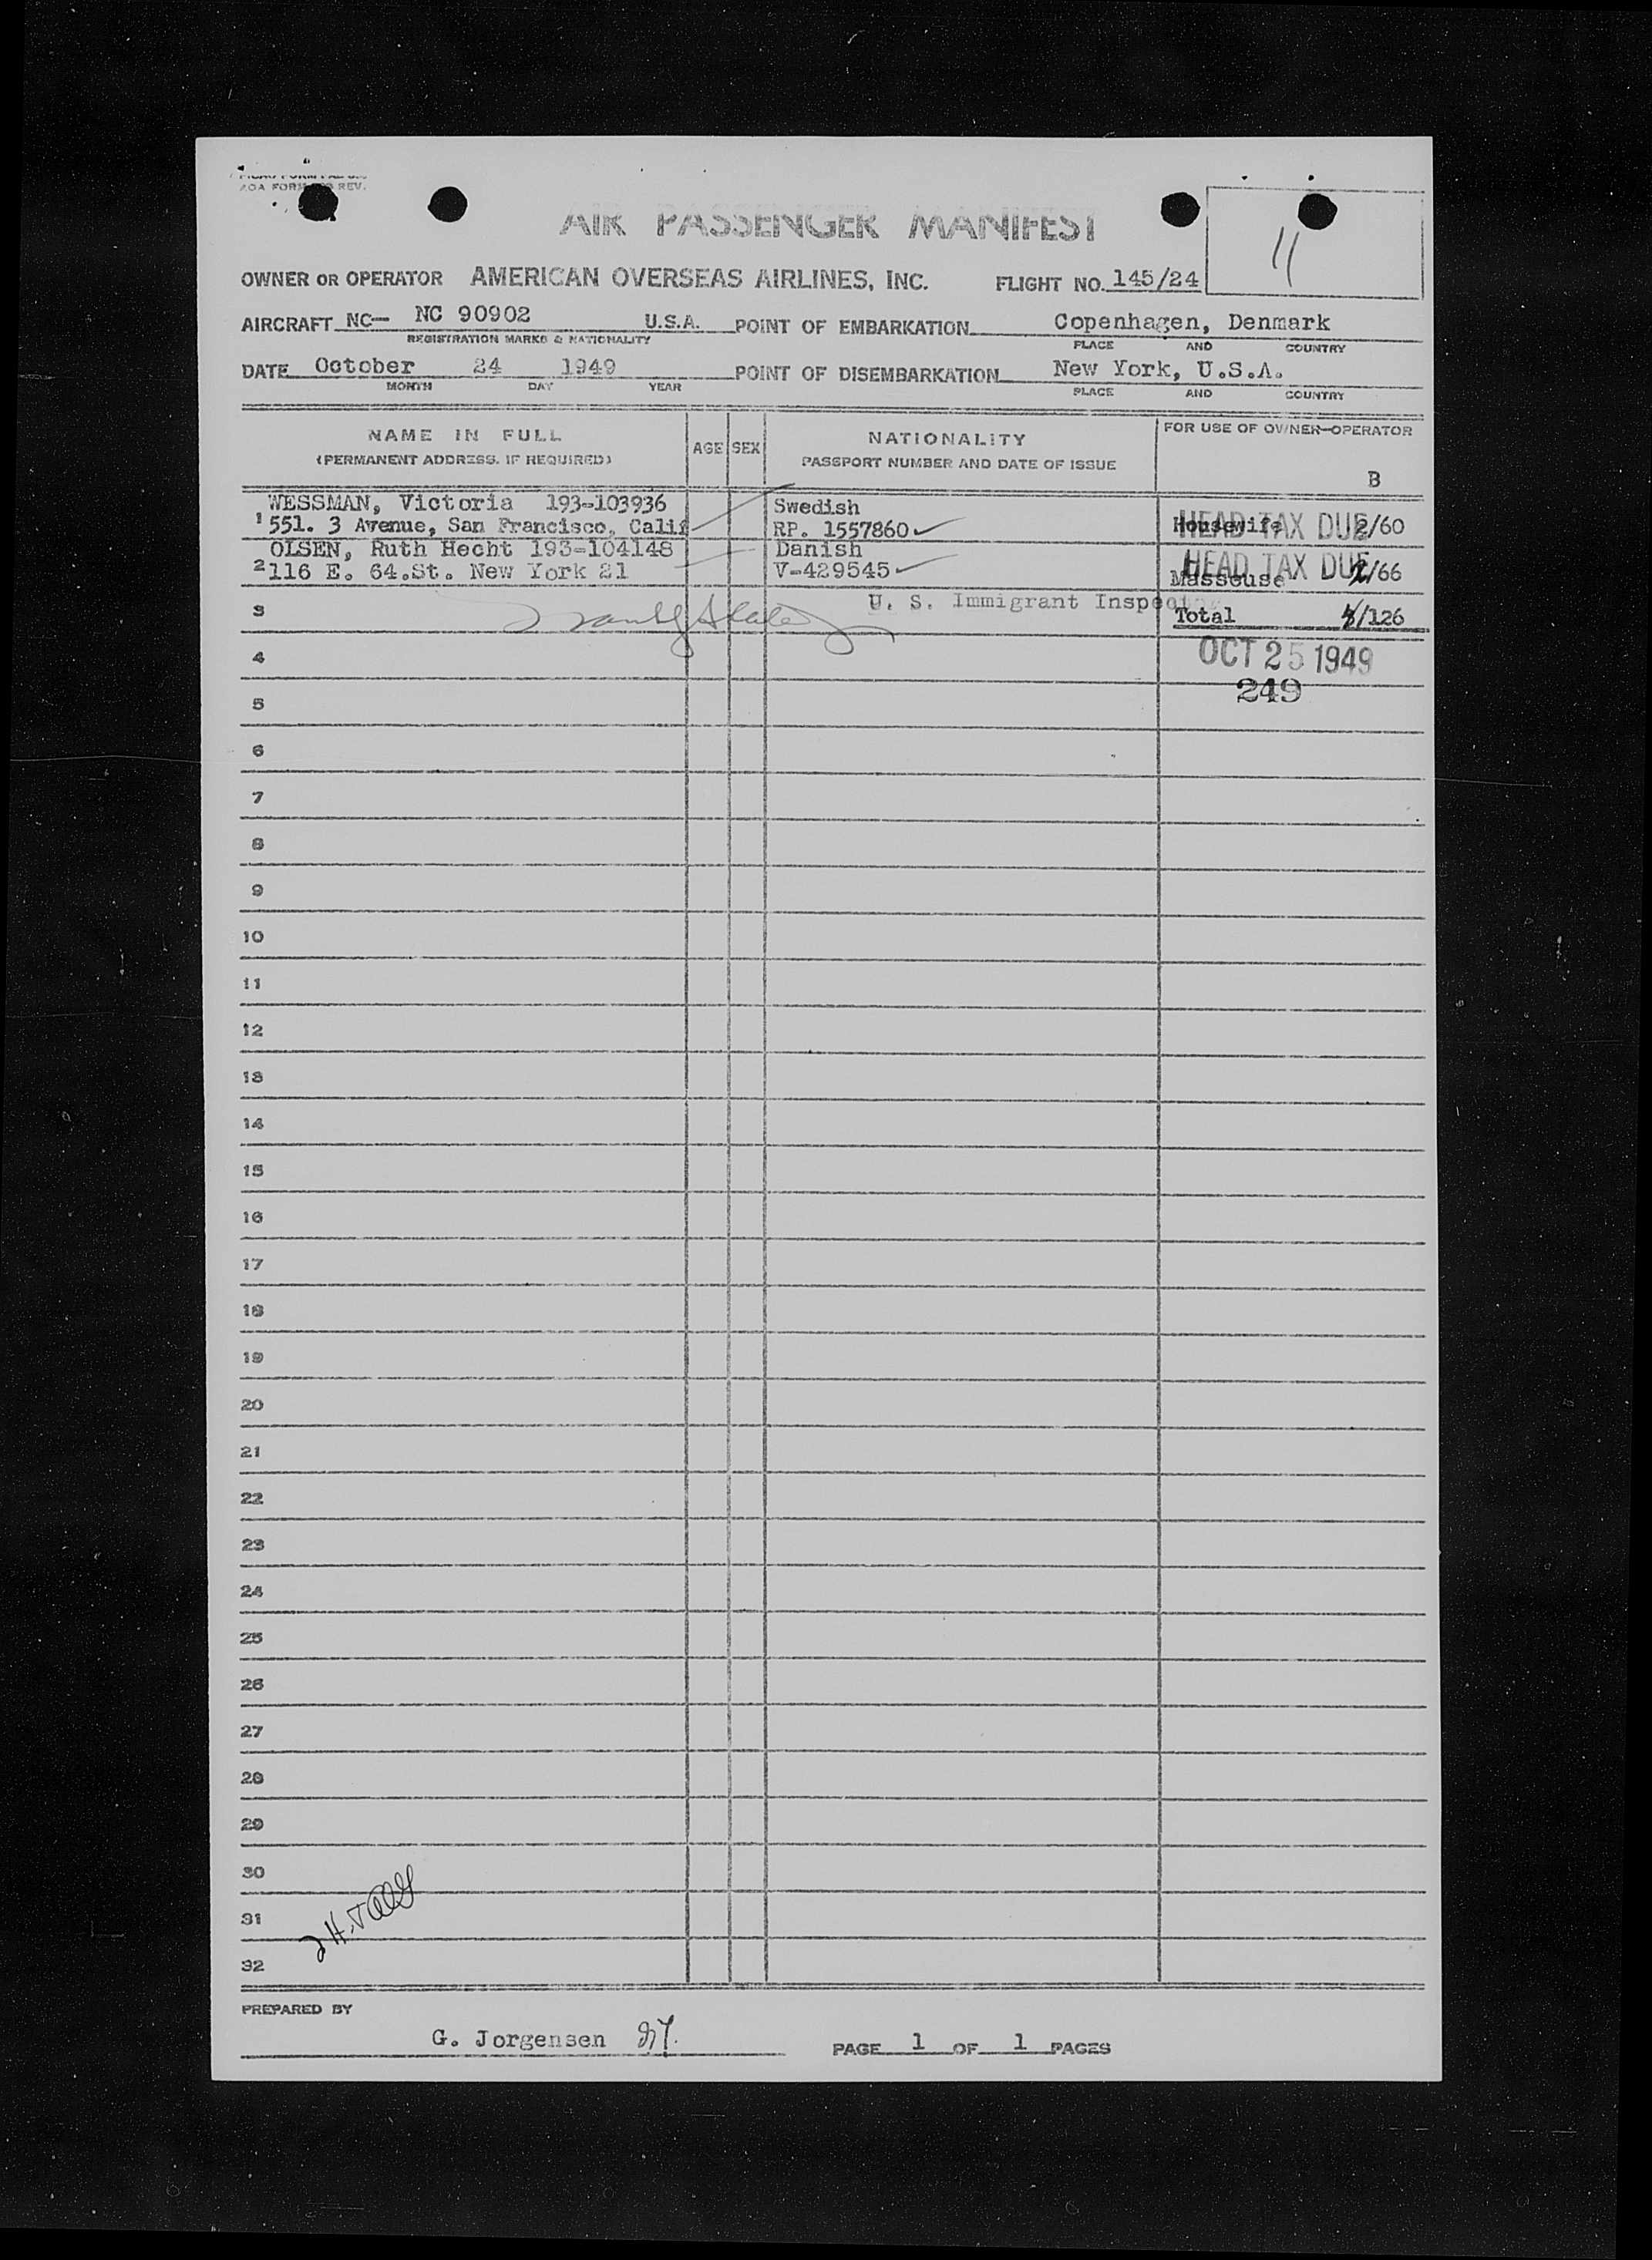 AOA FORM REV.
AIR PASSENGER MANIFEST
11
OWNER OR OPERATOR AMERICAN OVERSEAS AIRLINES, INC. FLIGHT NO. 145/24
AIRCRAFT NC— NC 90902 U.S.A. POINT OF EMBARKATION Copenhagen, Denmark
REGISTRATION MARKS & NATIONALITY PLACE AND COUNTRY
DATE October 24 1949 POINT OF DISEMBARKATION New York, U.S.A.
MONTH DAY YEAR PLACE AND COUNTRY
NAME IN FULL AGE SEX NATIONALITY FOR USE OF OWNER-OPERATOR
(PERMANENT ADDRESS, IF REQUIRED) PASSPORT NUMBER AND DATE OF ISSUE
B
WESSMAN, Victoria 193-103936 Swedish
1 551. 3 Avenue, San Francisco, Calif RP. 1557860 Housewife HEAD TAX DUE 2/60
OLSEN, Ruth Hecht 193-104148 Danish HEAD TAX DUE
2 116 E. 64.St. New York 21 V-429545 Masseuse /66
U. S. Immigrant Inspector
3 Total /126
4 OCT 25 1949
249
5
6
7
8
9
10
11
12
13
14
15
16
17
18
19
20
21
22
23
24
25
26
27
28
29
30
31
32
PREPARED BY
G. Jorgensen
PAGE 1 OF 1 PAGES